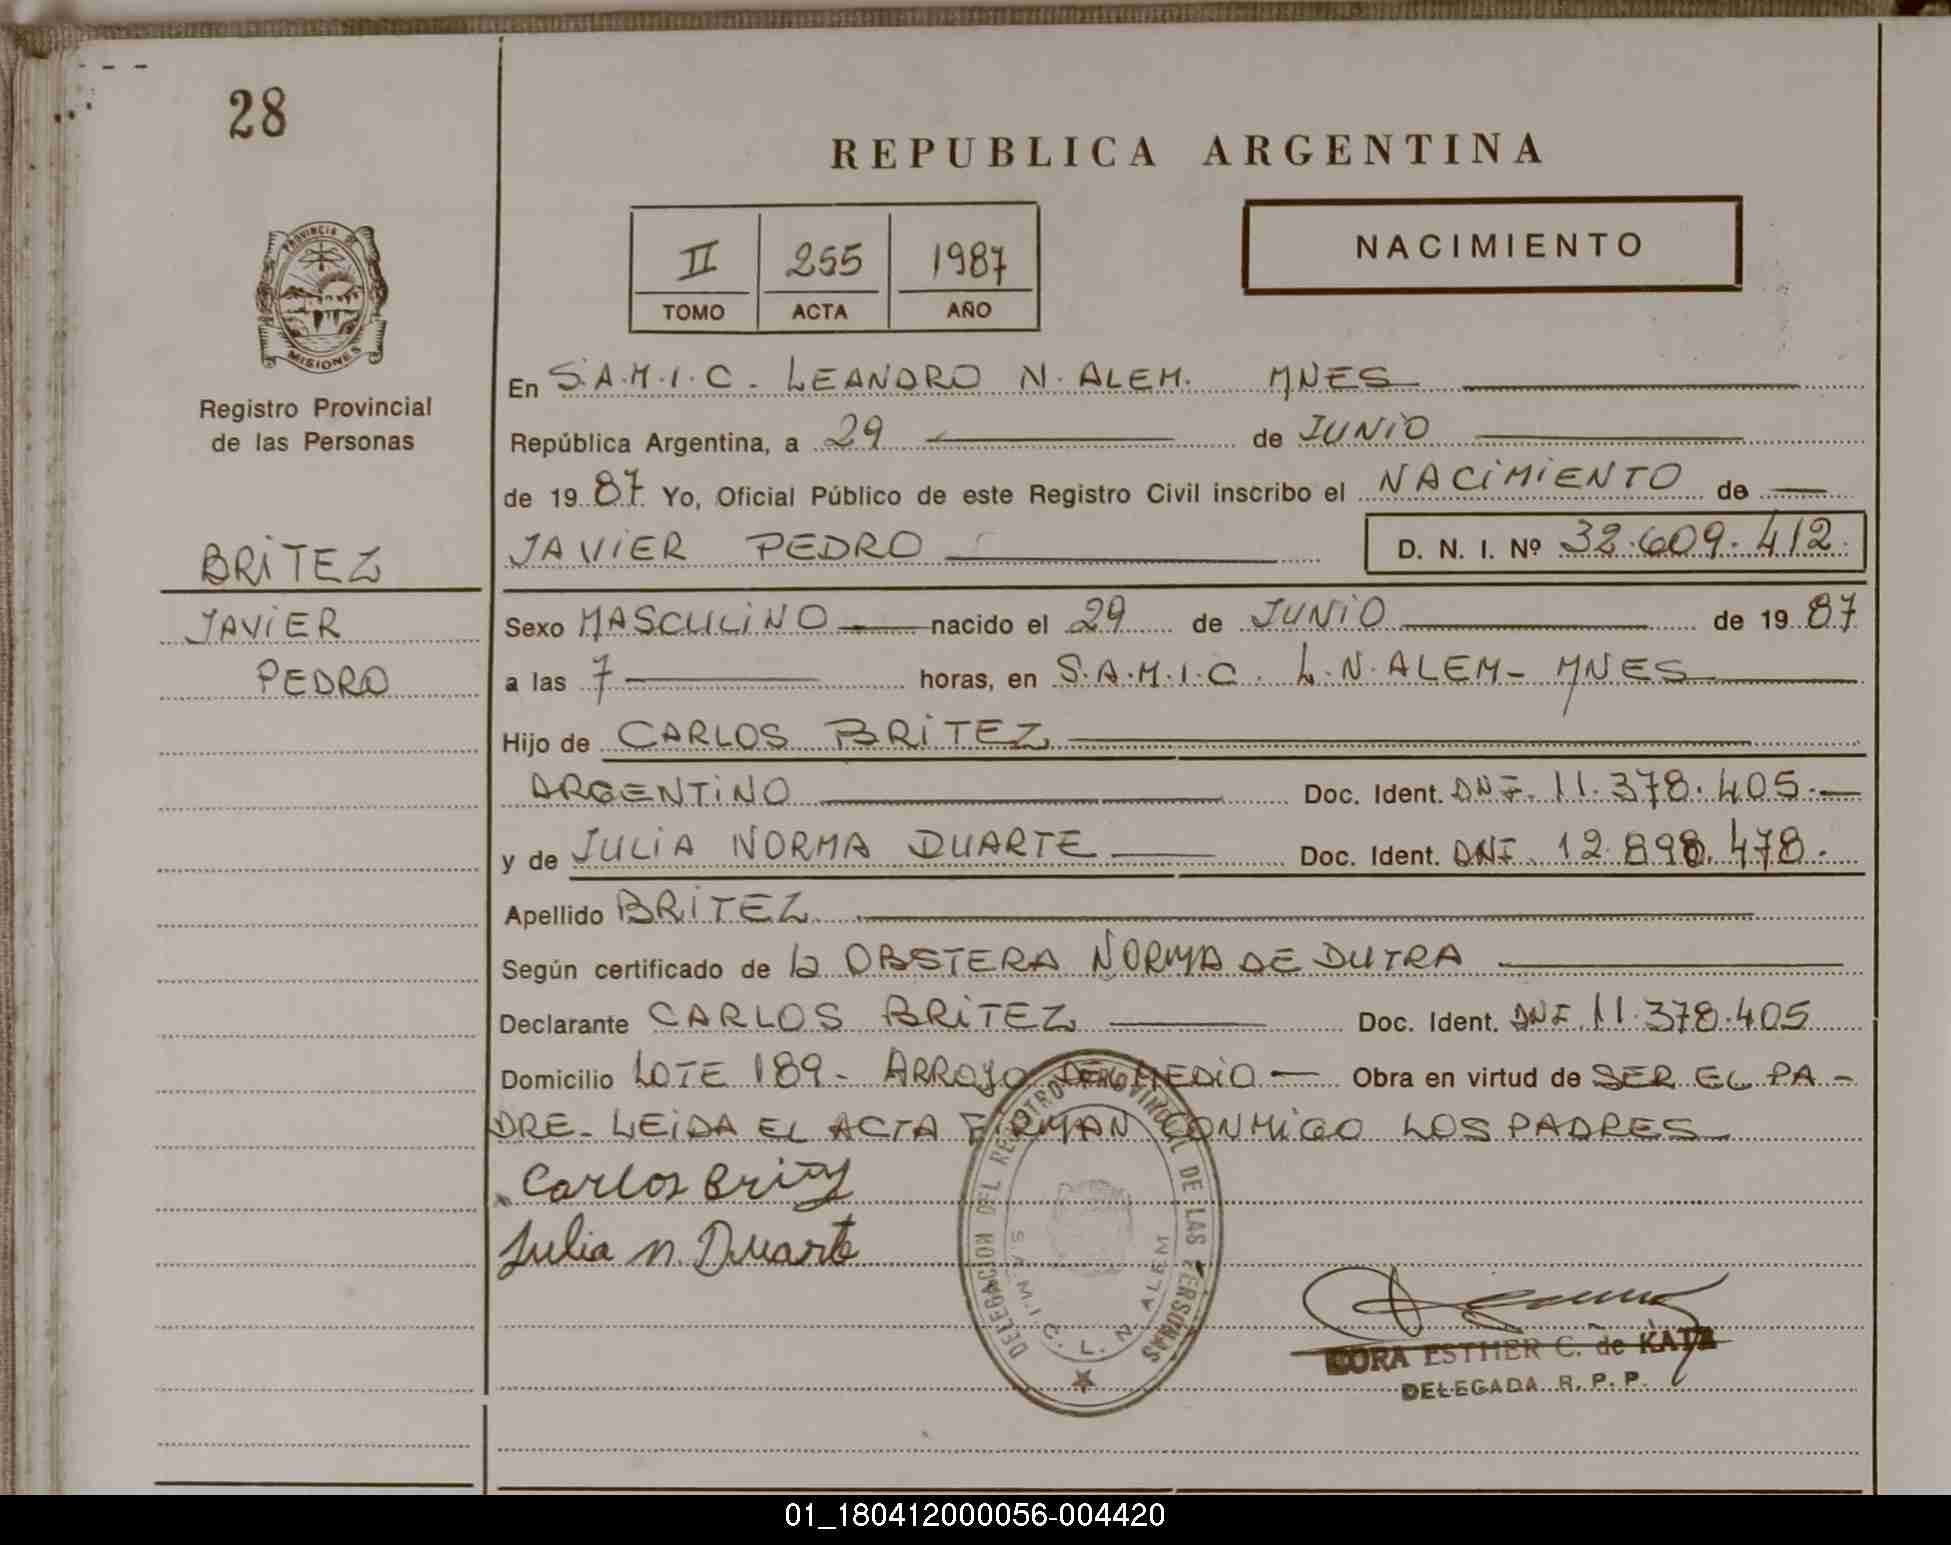 28
REPUBLICA ARGENTINA
II 255 1987
TOMO ACTA AÑO
NACIMIENTO
PROVINCIA DE
MISIONES
Registro Provincial
de las Personas
BRITEZ
JAVIER
PEDRO
En S.A.M.I.C. LEANDRO N. ALEM. MNES
República Argentina, a 29 de JUNIO
de 1987 Yo, Oficial Público de este Registro Civil inscribo el NACIMIENTO de
JAVIER PEDRO D. N. I. Nº 32.609.412.
Sexo MASCULINO nacido el 29 de JUNIO de 1987
a las 7 horas, en S.A.M.I.C. L.N. ALEM - MNES
Hijo de CARLOS BRITEZ
ARGENTINO Doc. Ident. DNI. 11.378.405.-
y de JULIA NORMA DUARTE Doc. Ident. DNI. 12.898.478.
Apellido BRITEZ
Según certificado de la OBSTERA NORMA DE DUTRA
Declarante CARLOS BRITEZ Doc. Ident. DNI 11.378.405
Domicilio LOTE 189 - ARROYO DEL MEDIO - Obra en virtud de SER EL PA-
DRE - LEIDA EL ACTA FIRMAN CONMIGO LOS PADRES
Carlos Britez
Julia N. Duarte
DELEGACION DEL REGISTRO PROVINCIAL DE LAS PERSONAS
S.A.M.I.C. L. N. ALEM
DORA ESTHER C. de KATZ
DELEGADA R. P. P.
01_180412000056-004420